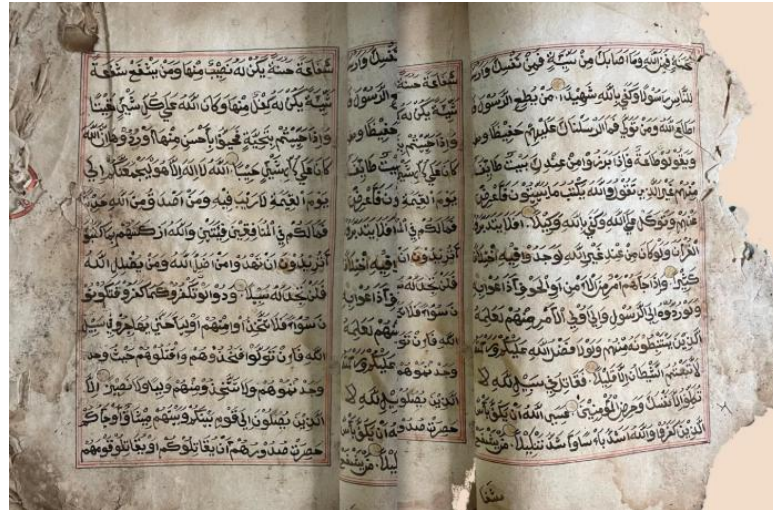 حَسَنَةٍ فَمِنَ اللَّهِ وَمَا أَصَابَكَ مِنْ سَيِّئَةٍ فَمِنْ نَفْسِكَ وَأَرْسَ
لِلنَّاسِ رَسُولًا وَكَفَى بِاللَّهِ شَهِيدًا مَنْ يُطِعِ الرَّسُولَ
أَطَاعَ اللَّهَ وَمَنْ تَوَلَّى فَمَا أَرْسَلْنَاكَ عَلَيْهِمْ حَفِيظًا
وَيَقُولُونَ طَاعَةٌ فَإِذَا بَرَزُوا مِنْ عِنْدِكَ بَيَّتَ طَائِفَةٌ
مِنْهُمْ غَيْرَ الَّذِي تَقُولُ وَاللَّهُ يَكْتُبُ مَا يُبَيِّتُونَ فَأَعْرِضْ
عَنْهُمْ وَتَوَكَّلْ عَلَى اللَّهِ وَكَفَى بِاللَّهِ وَكِيلًا أَفَلَا يَتَدَبَّرُونَ
الْقُرْآنَ وَلَوْ كَانَ مِنْ عِنْدِ غَيْرِ اللَّهِ لَوَجَدُوا فِيهِ اخْتِلَا
كَثِيرًا وَإِذَا جَاءَهُمْ أَمْرٌ مِنَ الْأَمْنِ أَوِ الْخَوْفِ أَذَاعُوا بِهِ
وَلَوْ رَدُّوهُ إِلَى الرَّسُولِ وَإِلَى أُولِي الْأَمْرِ مِنْهُمْ لَعَلِمَهُ
الَّذِينَ يَسْتَنْبِطُونَهُ مِنْهُمْ وَلَوْلَا فَضْلُ اللَّهِ عَلَيْكُمْ
لَاتَّبَعْتُمُ الشَّيْطَانَ إِلَّا قَلِيلًا فَقَاتِلْ فِي سَبِيلِ اللَّهِ لَا
تُكَلَّفُ إِلَّا نَفْسَكَ وَحَرِّضِ الْمُؤْمِنِينَ عَسَى اللَّهُ أَنْ يَكُفَّ بَأْسَ
الَّذِينَ كَفَرُوا وَاللَّهُ أَشَدُّ بَأْسًا وَأَشَدُّ تَنْكِيلًا مَنْ يَشْفَعْ
شفا
شَفَاعَةً حَسَنَةً يَكُنْ لَهُ نَصِيبٌ مِنْهَا وَمَنْ يَشْفَعْ شَفَعَةً
سَيِّئَةً يَكُنْ لَهُ كِفْلٌ مِنْهَا وَكَانَ اللَّهُ عَلَى كُلِّ شَيْءٍ مُقِيتًا
وَإِذَا حُيِّيتُمْ بِتَحِيَّةٍ فَحَيُّوا بِأَحْسَنَ مِنْهَا أَوْ رُدُّوهَا إِنَّ اللَّهَ
كَانَ عَلَى كُلِّ شَيْءٍ حَسِيبًا اللَّهُ لَا إِلَهَ إِلَّا هُوَ لَيَجْمَعَنَّكُمْ إِلَى
يَوْمِ الْقِيَمَةِ لَا رَيْبَ فِيهِ وَمَنْ أَصْدَقُ مِنَ اللَّهِ حَدِيثًا
فَمَا لَكُمْ فِي الْمُنَافِقِينَ فِئَتَيْنِ وَاللَّهُ أَرْكَسَهُمْ بِمَا كَسَبُوا
أَتُرِيدُونَ أَنْ تَهْدُوا مَنْ أَضَلَّ اللَّهُ وَمَنْ يُضْلِلِ اللَّهُ
فَلَنْ تَجِدَ لَهُ سَبِيلًا وَدُّوا لَوْ تَكْفُرُونَ كَمَا كَفَرُوا فَتَكُونُو
نَ سَوَاءً فَلَا تَتَّخِذُوا مِنْهُمْ أَوْلِيَاءَ حَتَّى يُهَاجِرُوا فِي سَبِيلِ
اللَّهِ فَإِنْ تَوَلَّوْا فَخُذُوهُمْ وَاقْتُلُوهُمْ حَيْثُ وَجَد
وَجَدْتُمُوهُمْ وَلَا تَتَّخِذُوا مِنْهُمْ وَلِيًّا وَلَا نَصِيرًا إِلَّا
الَّذِينَ يَصِلُونَ إِلَى قَوْمٍ بَيْنَكُمْ وَبَيْنَهُمْ مِيثَاقٌ أَوْ جَاءُوكُمْ
حَصِرَتْ صُدُورُهُمْ أَنْ يُقَاتِلُوكُمْ أَوْ يُقَاتِلُوا قَوْمَهُمْ